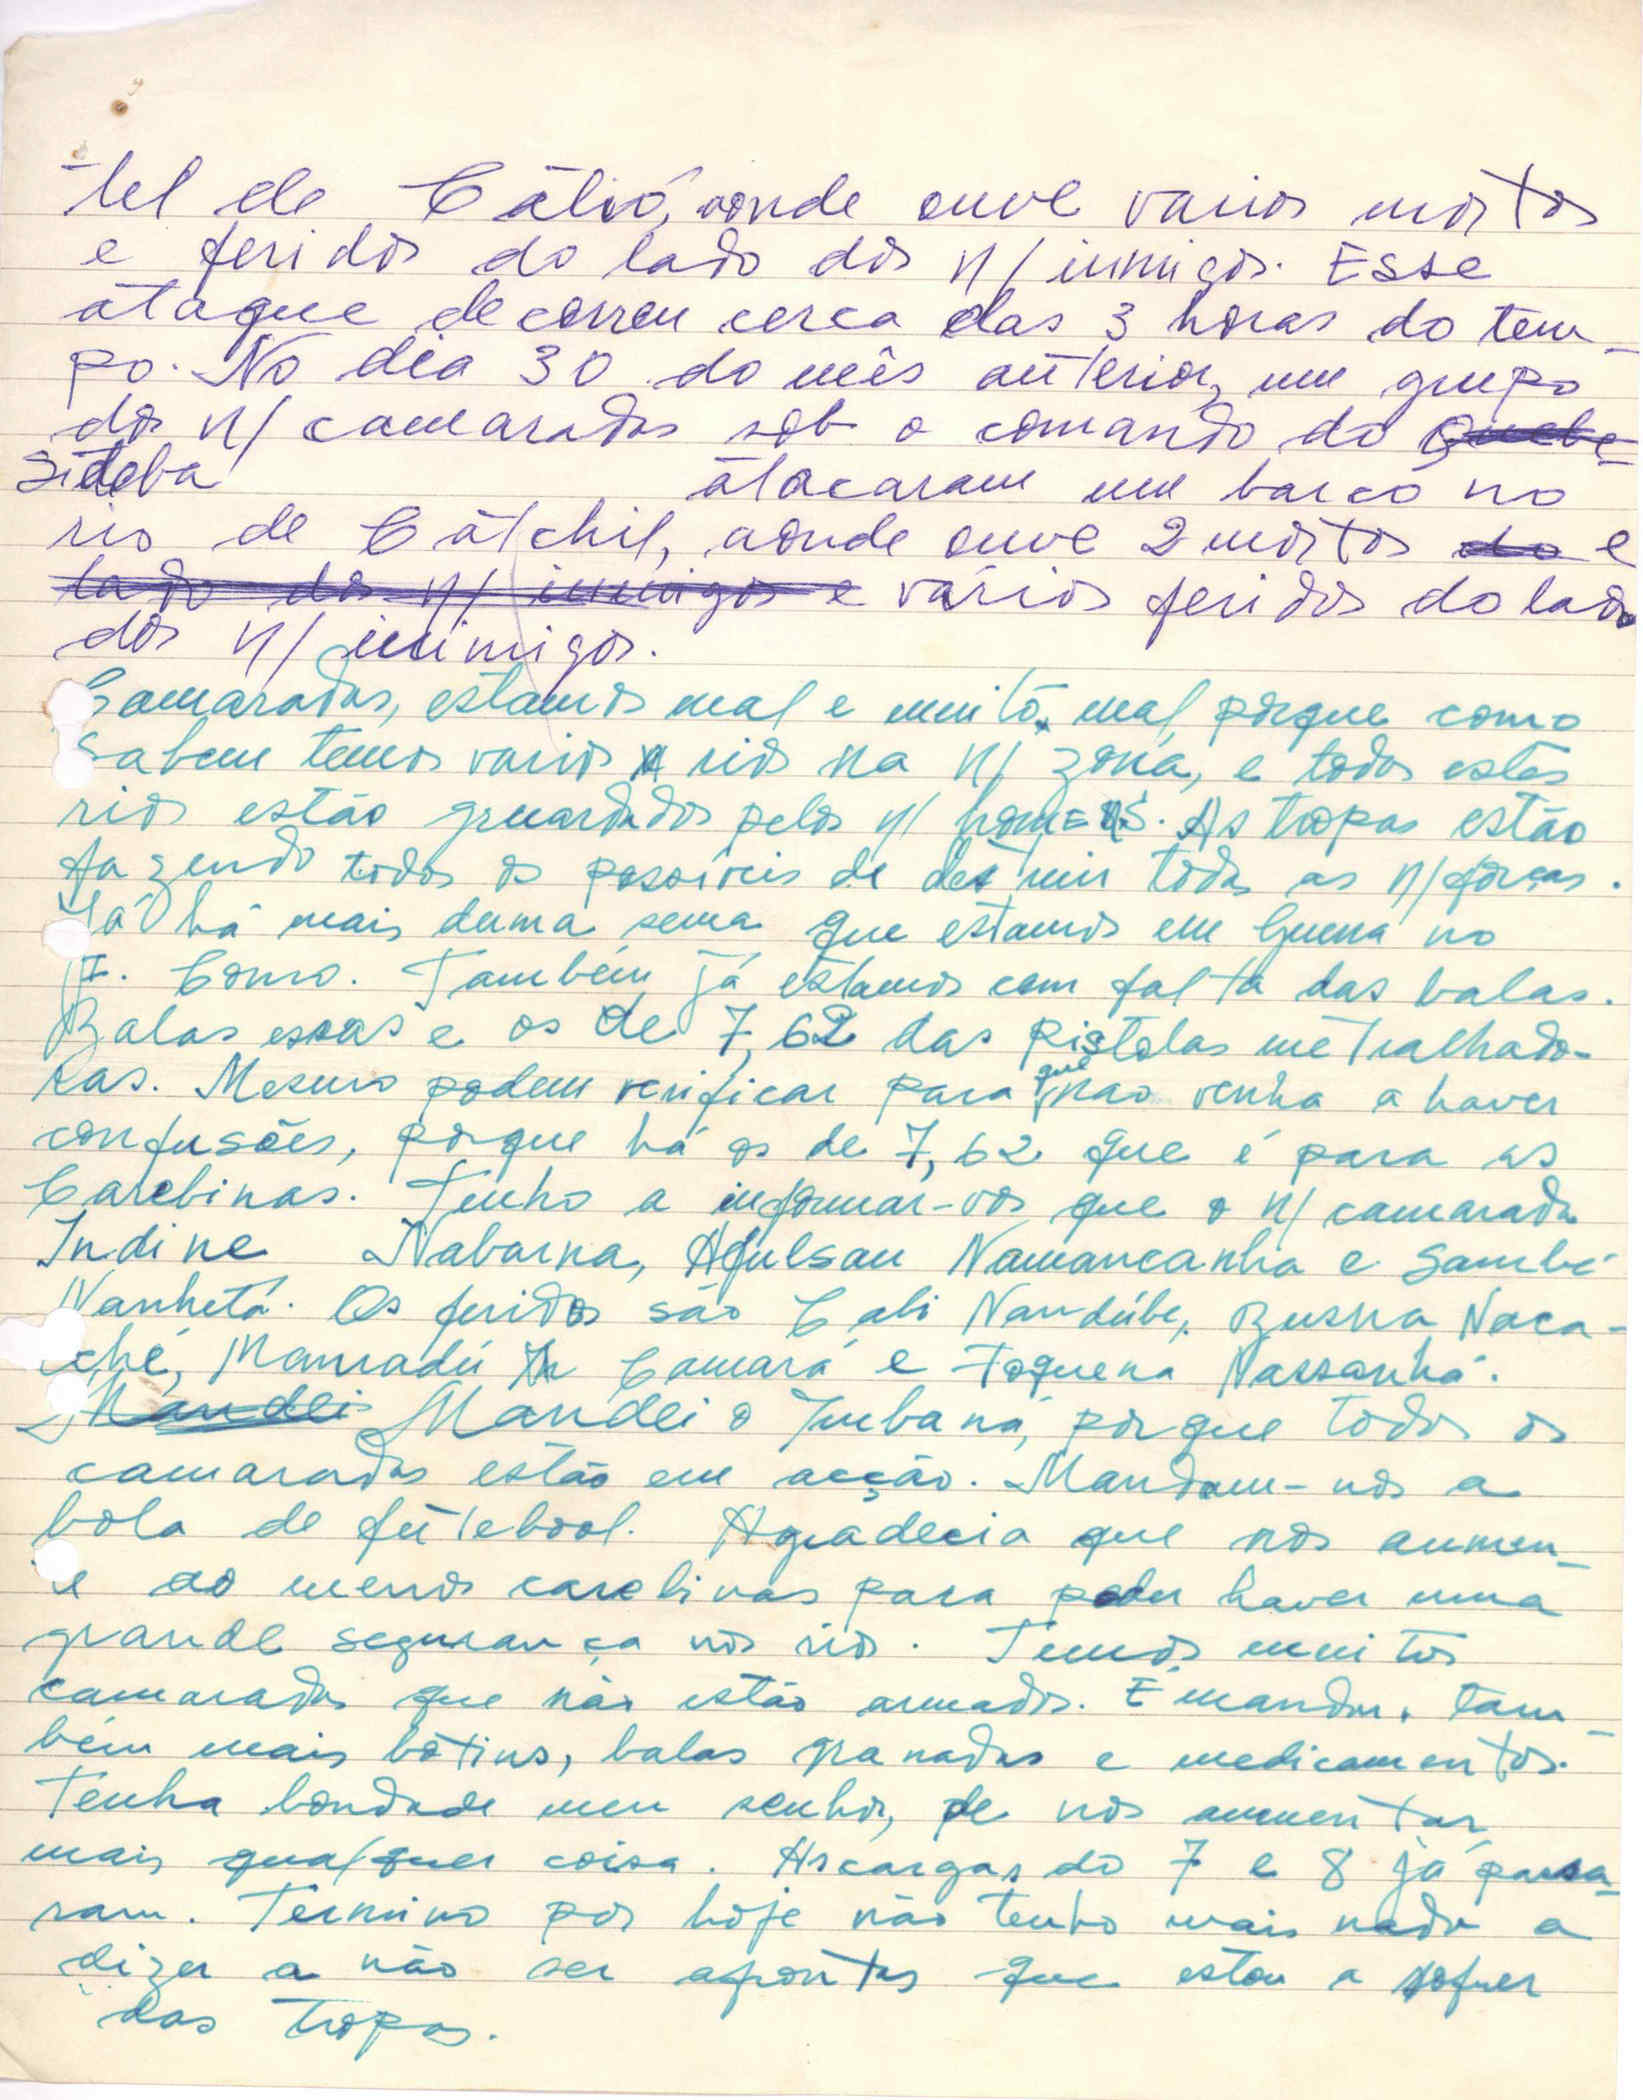 tel de Catió, aonde ouve varios mortos
e feridos do lado dos n/ inimigos. Esse
ataque decorreu cerca das 3 horas do tem-
po. No dia 30 do mês anterior, um grupo
dos n/ camaradas sob o comando do
Sideba atacaram um barco no
rio de Catchil, aonde ouve 2 mortos do e
lado dos n/ inimigos e vários feridos do lado
dos n/ inimigos.
Camaradas, estamos mal e muito mal, porque como
sabem temos varios rios na n/ zona, e todos estes
rios estão gruardados pelos n/ homens. As tropas estão
fazendo todos os possíveis de destruir todas as n/ forças.
Já há mais duma sema que estamos em Guerra no
I. Como. Também já estamos com falta das balas.
Balas essas e os de 7,62 das pistolas metralhado-
ras. Mesmo podem verificar para que nao venha a haver
confusões, porque há os de 7,62 que é para as
Carebinas. Tenho a informar-vos que o n/ camarada
Indine Nabarna, Afulsau Namancanha e Sambé
Nanhetá. Os feridos são Cabi Nandúbe, Busna Naca-
ché, Mamadú Camará e Toquena Nassanhá.
Mandei Mandei o Imbaná, porque todos os
camaradas estão em acção. Mandam-nos a
bola de futebool. Agradecia que nos aumen-
e ao menos carebinas para poder haver uma
grande segurança nos rios. Temos muitos
camaradas que não estão armados. E mandar, tam-
bém mais bótins, balas granadas e medicamentos.
Tenha bondade meu senhor, de nos aumentar
mais qualquer coisa. As cargas do 7 e 8 já passa-
ram. Termino por hoje não tenho mais nada a
dizer a não ser afrontas que estou a sofrer
das tropas.